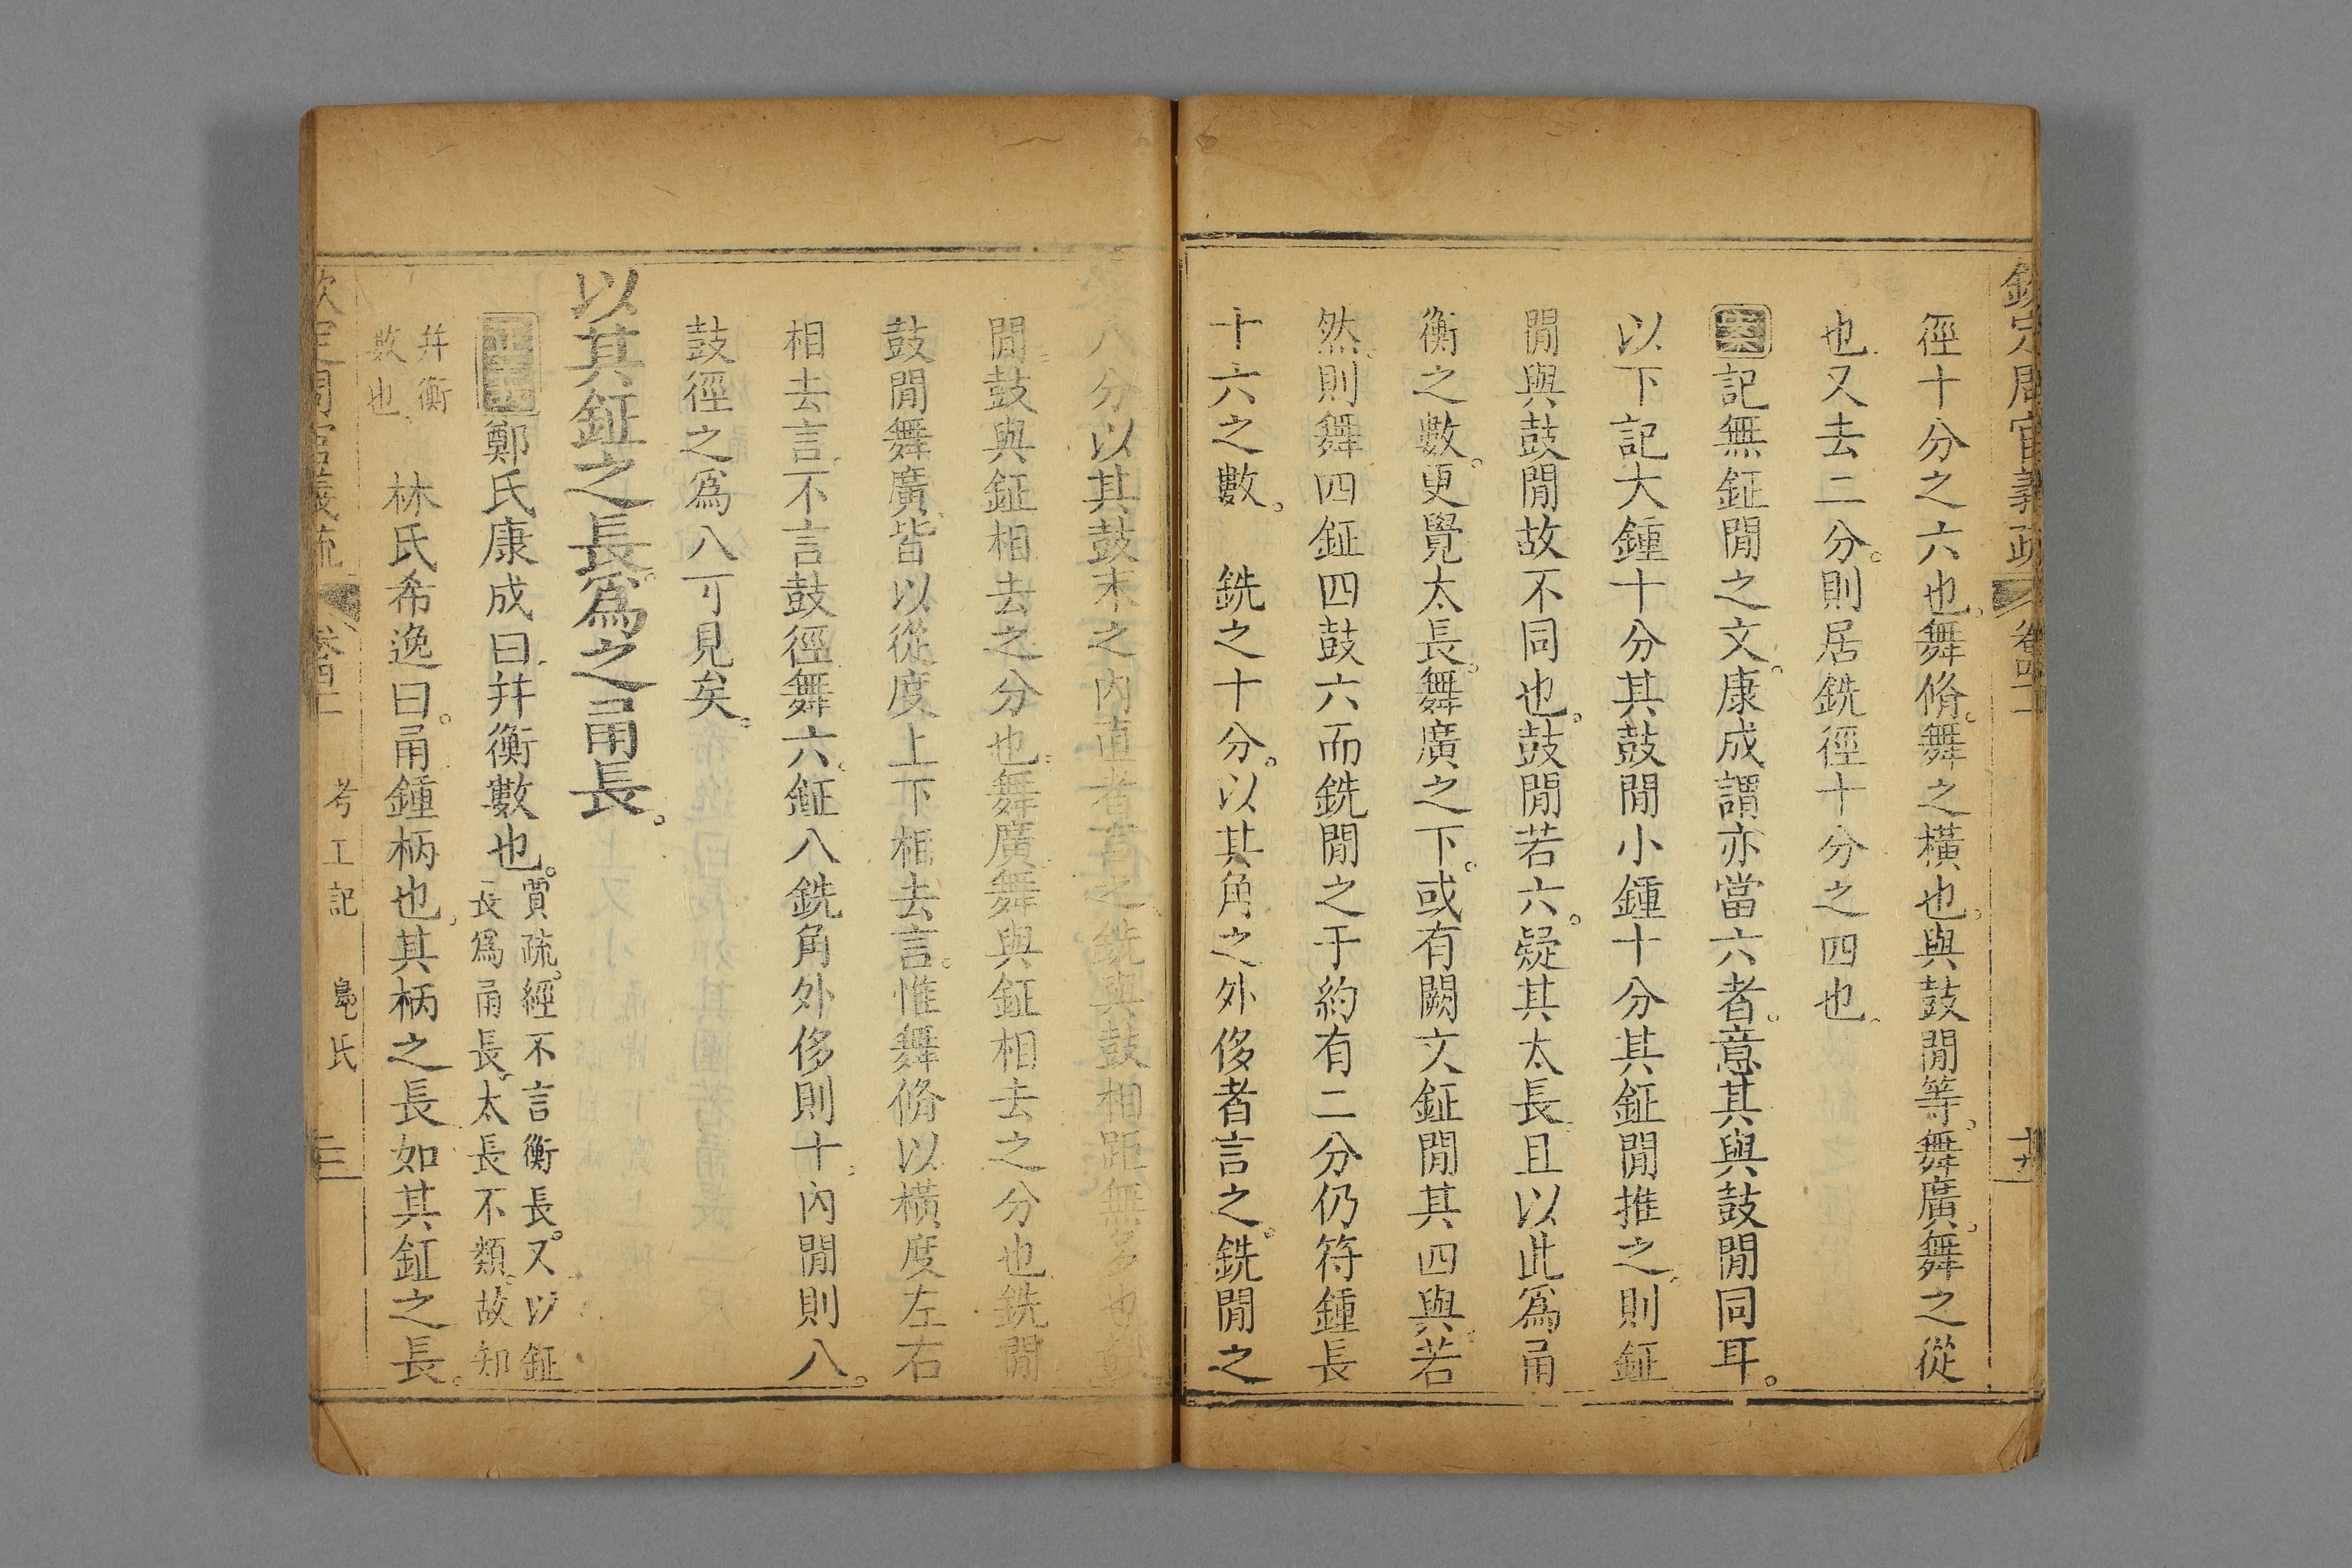 欽定周官義疏 卷四十二
徑十分之六也舞脩舞之橫也與鼓閒等舞廣舞之從
也又去二分則居銑徑十分之四也
案記無鉦閒之文康成謂亦當六者意其與鼓閒同耳
以下記大鍾十分其鼓閒小鍾十分其鉦閒推之則鉦
閒與鼓閒故不同也鼓閒若六疑其太長且以此爲甬
衡之數更覺太長舞廣之下或有闕文鉦閒其四與若
然則舞四鉦四鼓六而銑閒之于約有二分仍符鍾長
十六之數 銑之十分以其角之外侈者言之銑閒之
八分以其鼓末之內直者言之銑與鼓相距無多也
閒鼓與鉦相去之分也舞廣舞與鉦相去之分也銑閒
鼓閒舞廣皆以從度上下相去言惟舞脩以橫度左右
相去言不言鼓徑舞六鉦八銑角外侈則十內閒則八
鼓徑之爲八可見矣
以其鉦之長爲之甬長
鄭氏康成曰幷衡數也 賈疏經不言衡長又以鉦
長爲甬長太長不類故知
幷衡
數也 林氏希逸曰甬鍾柄也其柄之長如其鉦之長
欽定周官義疏 卷四十二 考工記 鳧氏